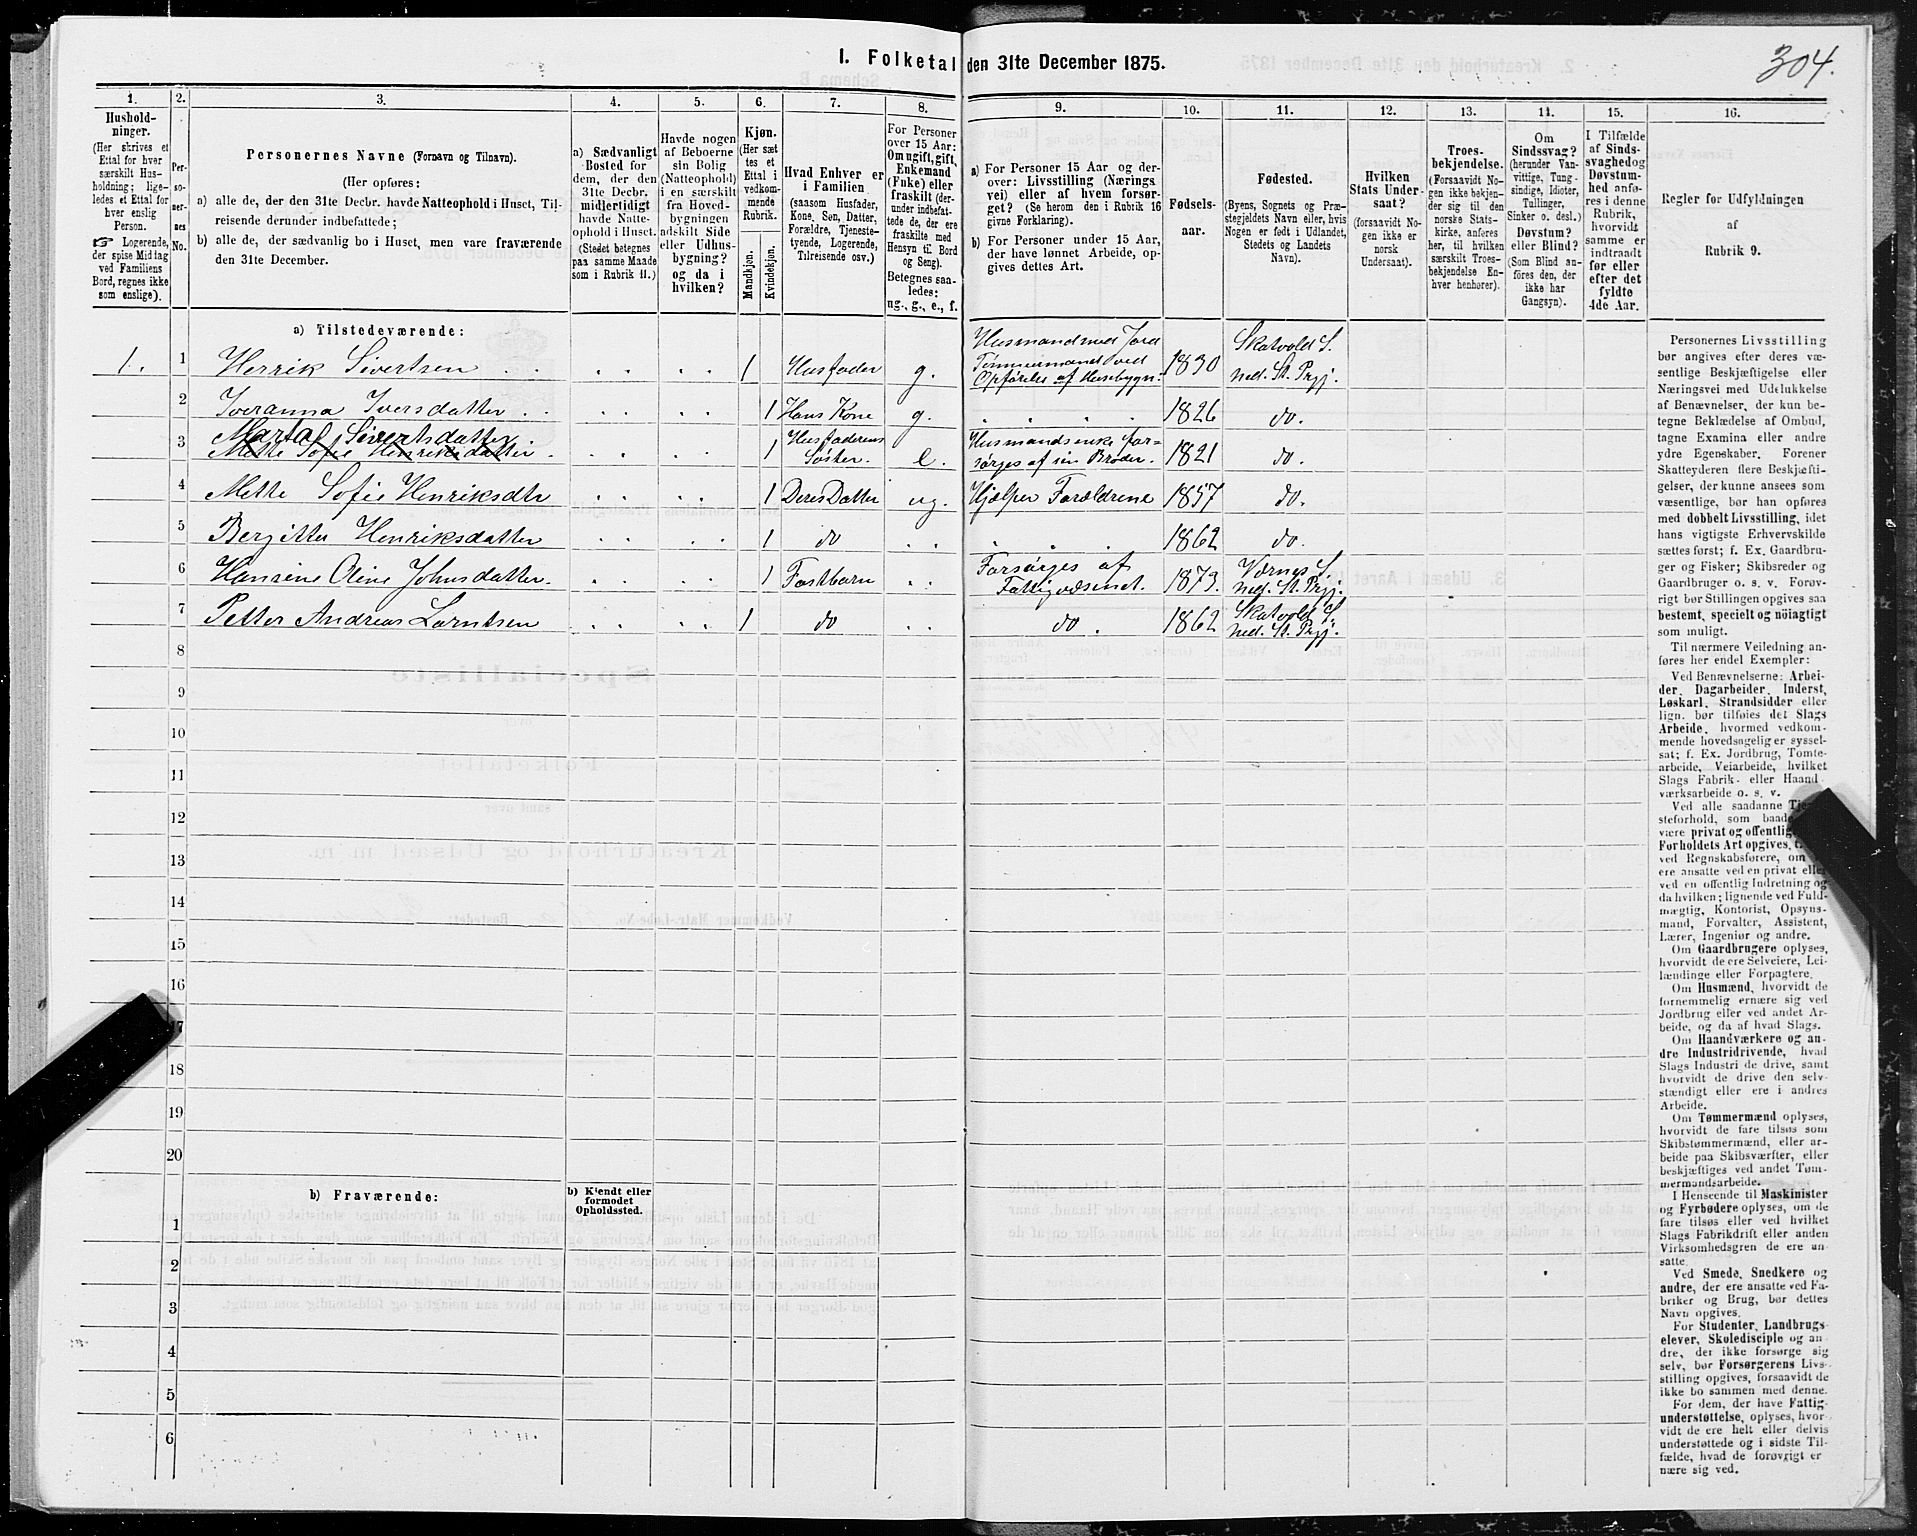 304.
I. Folketal den 31te December 1875.
1. 2. 3. 4. 5. 6. 7. 8. 9. 10. 11. 12. 13. 14. 15. 16.
Hushold-
ninger.
(Her skrives et
Ettal for hver
særskilt Hus-
holdning; lige-
ledes et Ettal for
hver enslig
Person.
☞ Logerende,
der spise Middag
ved Familiens
Bord, regnes ikke
som enslige).
Per-
so-
ner-
nes
No.
Personernes Navne (Fornavn og Tilnavn).
(Her opføres:
a) alle de, der den 31te Decbr. havde Natteophold i Huset, Til-
reisende derunder indbefattede;
b) alle de, der sædvanlig bo i Huset, men vare fraværende
den 31te December.
a) Sædvanligt
Bosted for
dem, der den
31te Decbr.
midlertidigt
havde Natte-
ophold i Huset.
(Stedet betegnes
paa samme Maade
som i Rubrik 11.)
Havde nogen
af Beboerne
sin Bolig
(Natteophold)
i en særskilt
fra Hoved-
bygningen
adskilt Side
eller Udhus-
bygning?
og da i
hvilken?
Kjøn.
(Her sæt
tes et
Ettal i
vedkom-
mende
Rubrik.
Mandkjøn.
Kvindekjøn.
Hvad Enhver er
i Familien
(saasom Husfader,
Kone, Søn, Datter,
Forældre, Tjeneste-
tyende, Logerende,
Tilreisende osv.)
For Personer
over 15 Aar:
Om ugift, gift,
Enkemand
(Enke) eller
fraskilt (der-
under indbefat-
tede de, der ere
fraskilte med
Hensyn til Bord
og Seng).
Betegnes saa-
ledes:
ug., g., e., f.
a) For Personer 15 Aar og der-
over: Livsstilling (Nærings
vei) eller af hvem forsør-
get? (Se herom den i Rubrik 16
givne Forklaring).
b) For Personer under 15 Aar,
der have lønnet Arbeide, op-
gives dettes Art.
Fødsels-
aar.
Fødested.
(Byens, Sognets og Præ-
stegjeldets Navn eller, hvis
Nogen er født i Udlandet,
Stedets og Landets
Navn).
Hvilken
Stats Under-
saat?
(forsaavidt No-
gen ikke er
norsk
Undersaat).
Troes-
bekjendelse.
(Forsaavidt No-
gen ikke bekjen-
der sig til den
norske Stats-
kirke, anføres
her, til hvilken
særskilt Troes-
bekjendelse En-
hver henhører).
Om
Sindssvag?
(herunder Van-
vittige, Tung-
sindige, Idioter,
Tullinger,
Sinker o. desl.)
Døvstum?
eller Blind?
(Som Blind an-
føres den, der
ikke har
Gangsyn).
I Tilfælde
af Sinds-
svaghed og
Døvstum-
hed anfø-
res i denne
Rubrik,
hvorvidt
samme er
indtraadt
før eller
efter det
fyldte
4de Aar.
Regler for Udfyldningen
af
Rubrik 9.
a) Tilstedeværende:
1. 1 Henrik Sivertsen 1 Husfader g. Husmand med Jord Tømmermand ved Opførelse af Husebygn. 1830 Skatvold S. Ned. St. Prgj.
2 Iveranna Iversdatter 1 Hans Kone g. 1826 do.
3 Marta Sivertsdatter Mette Sofie Henriksdatter 1 Husfaderens Søster. e. Husmandsenke for- sørges af sin Broder. 1821 do.
4 Mette Sofie Henriksdtr 1 Deres Datter ug. Hjælper Forældrene 1857 do.
5 Bergitte Henriksdatter 1 do 1862 do.
6 Hansine Oline Johnsdatter. 1 Fostbarn Forsørges af Fattigvæsenet. 1873. Værnes S. Ned. St. Prgj.
7 Petter Andreas Lorntsen 1 do do. 1862 Skatvold S. Ned. St. Prgj.
8
9
10
11
12
13
14
15
16
17
18
19
20
b) Fraværende:
b) Kjendt eller
formodet
Opholdssted.
1
2
3
4
5
6
Personernes Livsstilling
bør angives efter deres væ-
sentlige Beskjæftigelse eller
Næringsvei med Udelukkelse
af Benævnelser, der kun be-
tegne Beklædelse af Ombud,
tagne Examina eller andre
ydre Egenskaber. Forener
Skatteyderen flere Beskjæfti-
gelser, der kunne ansees som
væsentlige, bør han opføres
med dobbelt Livsstilling, idet
hans vigtigste Erhvervskilde
sættes først; f. Ex. Gaardbru-
ger og Fisker; Skibsreder og
Gaardbruger o. s. v. Forøv-
rigt bør Stillingen opgives saa
bestemt, specielt og nöiagtigt
som muligt.
Til nærmere Veiledning an-
føres her endel Exempler:
Ved Benævnelserne: Arbei-
der, Dagarbeider, Inderst,
Løskarl, Strandsidder eller
lign. bør tilføies det Slags
Arbeide, hvormed vedkom-
mende hovedsagelig er syssel-
sat; f. Ex. Jordbrug, Tomte-
arbeide, Veiarbeide, hvilket
Slags Fabrik- eller Haand
værksarbeide o. s. v.
Ved alle saadanne
steforhold, som
være privat og offentlig
Forholdets Art opgives,
ved Regnskabsførere, om
ere ansatte ved en privat
ved en offentlig Indretning og
da hvilken; lignende ved Fuld-
mægtig, Kontorist, Opsyns-
mand, Forvalter, Assistent,
Lærer, Ingeniør og andre.
Om Gaardbrugere oplyses,
hvorvidt de ere Selveiere, Lei-
lændinge eller Forpagtere.
Om Husmænd, hvorvidt de
fornemmelig ernære sig ved
Jordbrug eller ved andet Ar-
beide, og da af hvad Slags.
Om Haandværkere og an-
dre Industridrivende, hvad
Slags Industri de drive, samt
hvorvidt de drive den selv-
stændigt eller ere i andres
Arbeide.
Om Tømmermænd oplyses,
hvorvidt de fare tilsøs som
Skibstømmermænd, eller ar-
beide paa Skibsværfter, eller
beskjæftiges ved andet Tøm-
mermandsarbeide.
I Henseende til Maskinister
og Fyrbødere oplyses, om de
fare tilsøs eller ved hvilket
Slags Fabrikdrift eller anden
Virksomhedsgren de ere an-
satte.
Ved Smede, Snedkere og
andre, der ere ansatte ved Fa-
briker og Brug, bør dettes
Navn opgives.
For Studenter, Landbrugs-
elever, Skoledisciple og an-
dre, der ikke forsørge sig
selv, bør Forsørgerens Livs-
stilling opgives, forsaavidt de
ikke bo sammen med denne.
For dem, der have Fattig-
understøttelse, oplyses, hvor-
vidt de ere helt eller delvis
understøttede og i sidste Til-
fælde, hvad de forøvrigt er
nære sig ved.